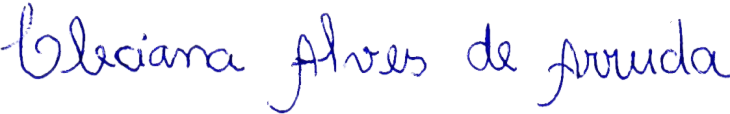 Cleciana Alves de Arruda